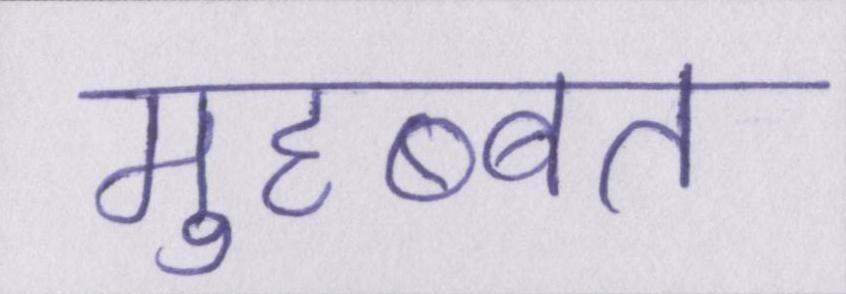 मुहब्बत